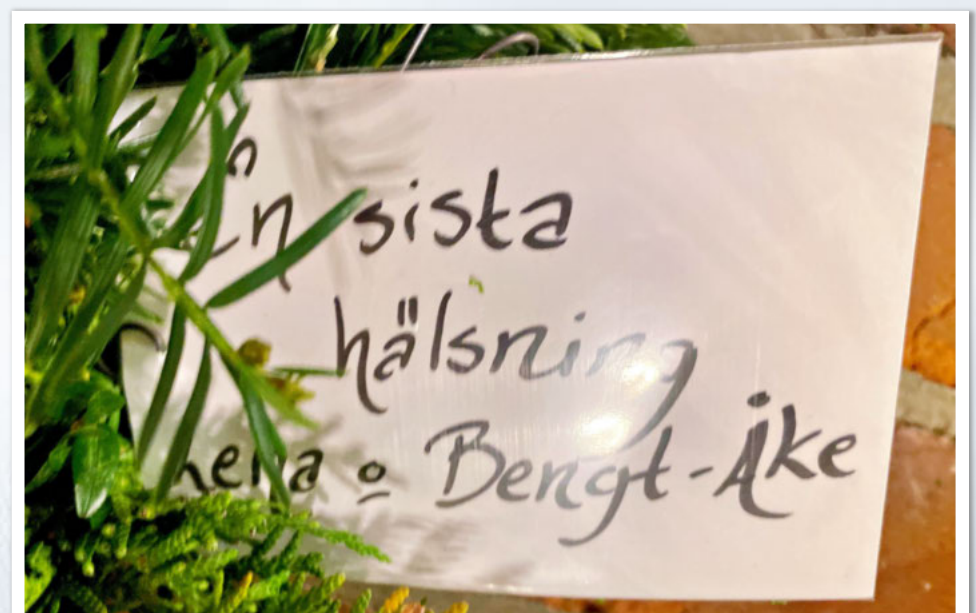 En sista
hälsning
o Bengt-Åke